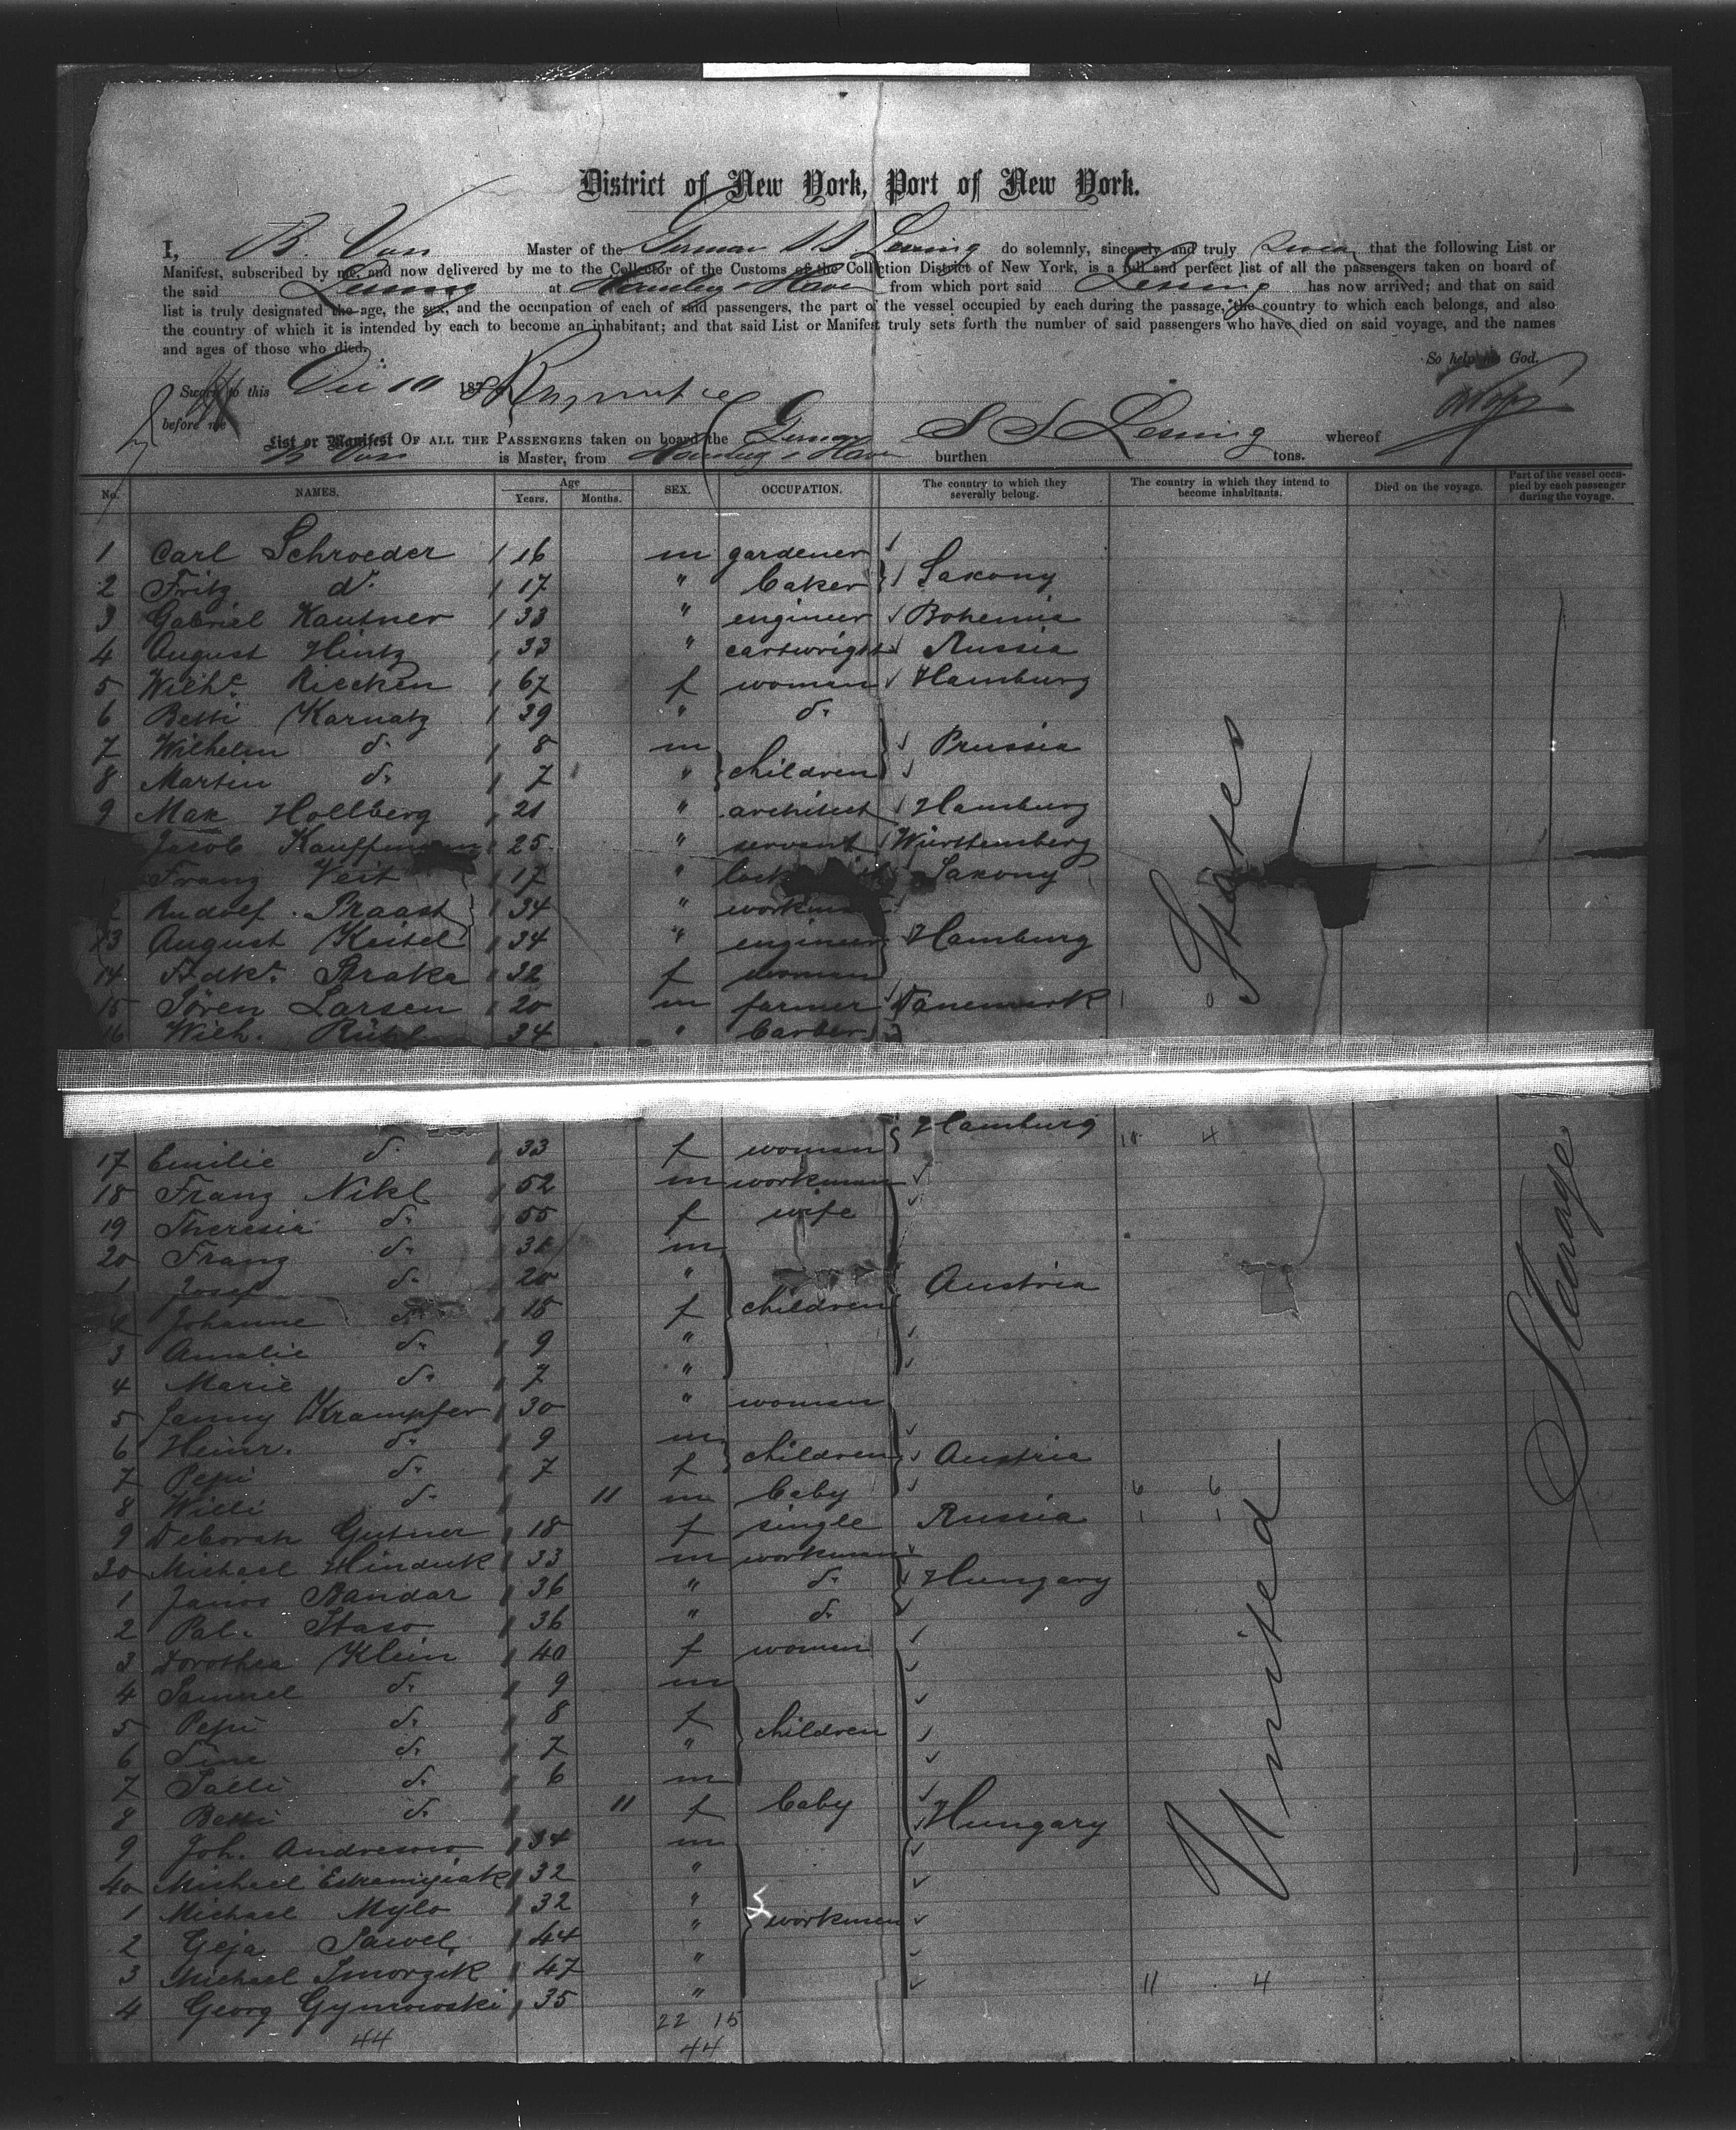 District of New York, Port of New York.
I, B. Voss Master of the German SS Lessing do solemnly, sincerely and truly swear that the following List or
Manifest, subscribed by me, and now delivered by me to the Collector of the Customs of the Collection District of New York, is a full and perfect list of all the passengers taken on board of
the said Lessing at Hamburg & Havre from which port said Lessing has now arrived; and that on said
list is truly designated the age, the sex, and the occupation of each of said passengers, the part of the vessel occupied by each during the passage, the country to which each belongs, and also
the country of which it is intended by each to become an inhabitant; and that said List or Manifest truly sets forth the number of said passengers who have died on said voyage, and the names
and ages of those who died.
So help me God.
Sworn to this Dec 10 187
before me
List or Manifest OF ALL THE PASSENGERS taken on board the German SS Lessing whereof
B Voss is Master, from Hamburg & Havre burthen tons.
No. NAMES. Age Years. Months. SEX. OCCUPATION. The country to which they severally belong. The country in which they intend to become inhabitants. Died on the voyage. Part of the vessel occupied by each passenger during the voyage.
1 Carl Schroeder 16 m gardener
2 Fritz do 17 " baker Saxony
3 Gabriel Kautner 33 " engineer Bohemia
4 August Hintz 33 " cartwright Russia
5 Wilhe. Riecken 67 f woman Hamburg
6 Betti Karnatz 39 " do
7 Wilhelm do 8 m Prussia
8 Martin do 7 " children
9 Max Hollberg 21 " architect Hamburg
Jacob Kauffmann 25 " servant Württemberg
Franz Veit 17 " Saxony
2 Rudolf Praast 34 " workman
13 August Keitel 34 " engineer Hamburg
14 Fdke. Straka 32 f woman
15 Sören Larsen 20 m farmer Danemark
16 Wilh. Rühl 34 " barber
Hamburg
17 Emilie do 33 f woman
18 Franz Nikl 52 m workman
19 Theresia do 55 f wife
20 Franz do 31 m
1 Josef do 20 " Austria
2 Johanne do 18 f children
3 Amalie do 9 "
4 Marie do 7 "
5 Janny Krampfer 30 " woman
6 Heinr. do 9 m
7 Pepi do 7 f children Austria
8 Willi do 11 m baby
9 Deborah Gutner 18 f single Russia
30 Michael Hinduk 33 m workman
1 Janos Bandar 36 " do Hungary
2 Pal. Staso 36 " do
3 Dorothea Klein 40 f woman
4 Samuel do 9 m
5 Pepi do 8 f children
6 Tine do 7 "
7 Salli do 6 m
8 Betti do 11 f baby Hungary
9 Joh. 34 m
40 Michael 32 "
1 Michael Mylo 32 " workmen
2 Geja Pawel 44 "
3 Michael Smorzik 47 "
4 Georg Gymowski 35 "
44
22 15
44
United States
Steerage